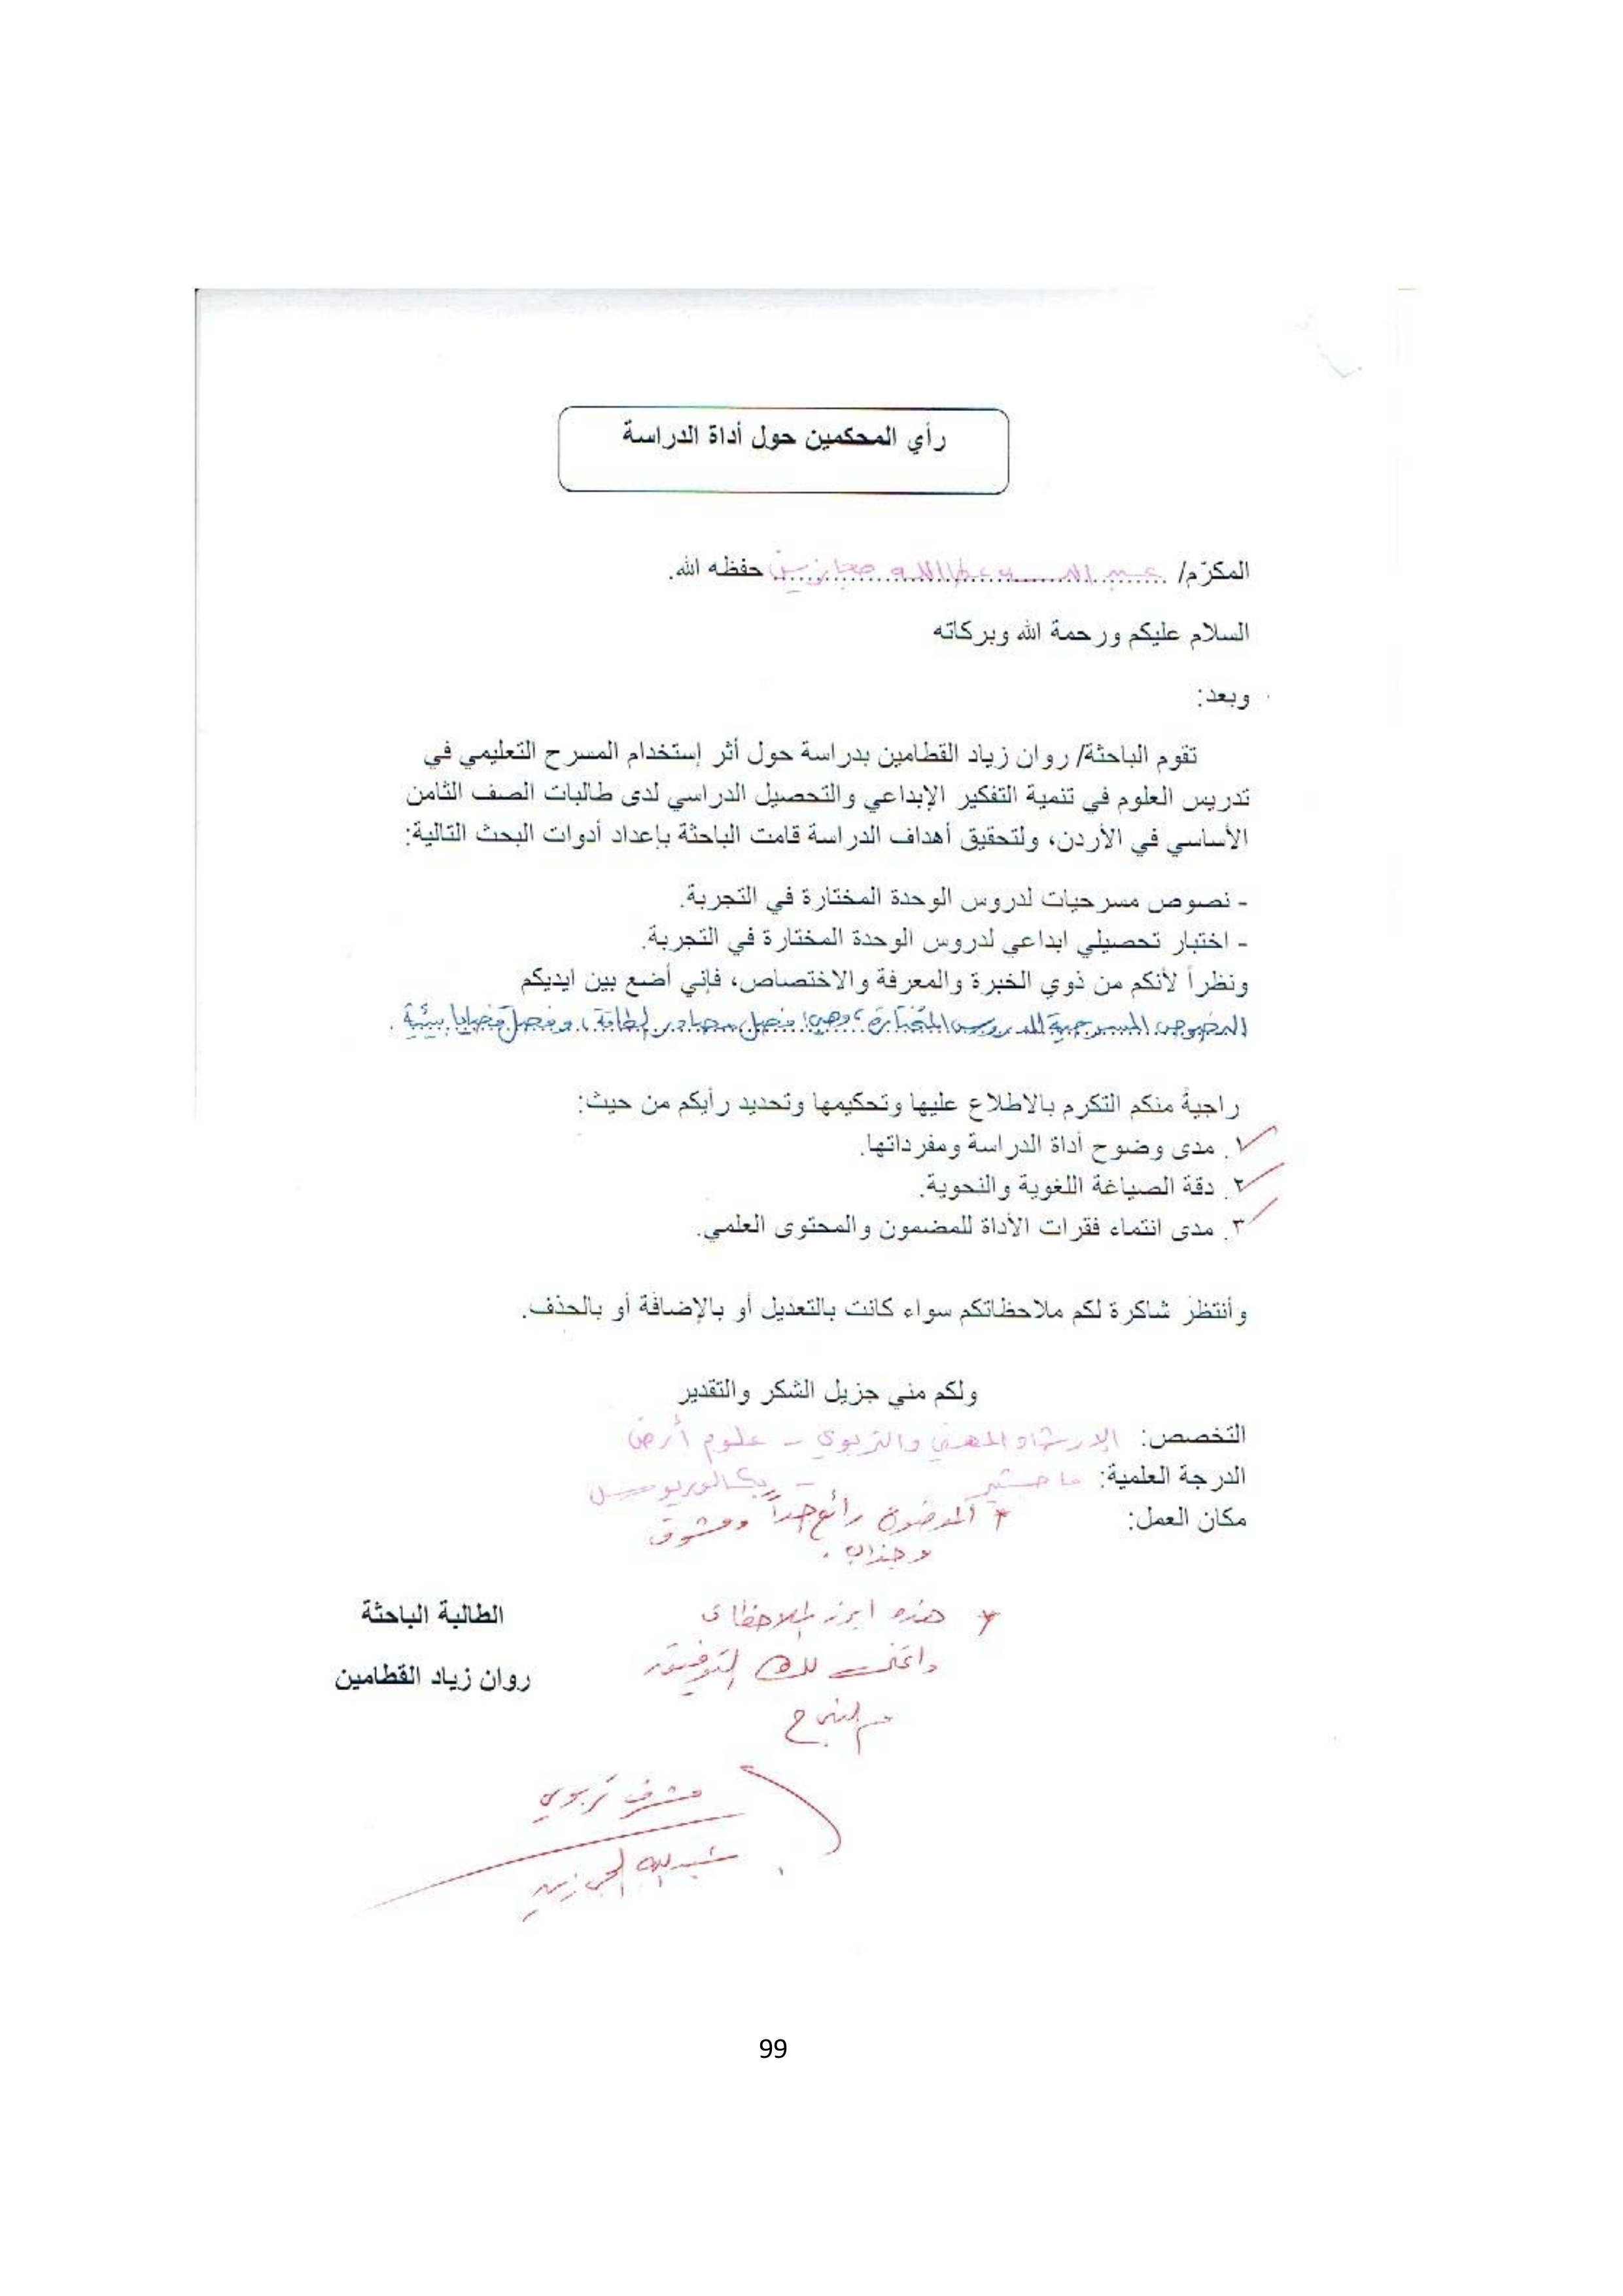 رأي المحكمين حول أداة الدراسة
المكرّم/ عبد الله عطا الله حفظه الله.
السلام عليكم ورحمة الله وبركاته
وبعد:
تقوم الباحثة/ روان زياد القطامين بدراسة حول أثر إستخدام المسرح التعليمي في
تدريس العلوم في تنمية التفكير الإبداعي والتحصيل الدراسي لدى طالبات الصف الثامن
الأساسي في الأردن، ولتحقيق أهداف الدراسة قامت الباحثة بإعداد أدوات البحث التالية:
- نصوص مسرحيات لدروس الوحدة المختارة في التجربة.
- اختبار تحصيلي ابداعي لدروس الوحدة المختارة في التجربة.
ونظراً لأنكم من ذوي الخبرة والمعرفة والاختصاص، فإني أضع بين ايديكم
النصوص المسرحية للدروس المختارة، وهي: فصل مصادر الطاقة، وفصل قضايا بيئية.
راجيةً منكم التكرم بالاطلاع عليها وتحكيمها وتحديد رأيكم من حيث:
١. مدى وضوح أداة الدراسة ومفرداتها.
٢. دقة الصياغة اللغوية والنحوية.
٣. مدى انتماء فقرات الأداة للمضمون والمحتوى العلمي.
وأنتظر شاكرة لكم ملاحظاتكم سواء كانت بالتعديل أو بالإضافة أو بالحذف.
ولكم مني جزيل الشكر والتقدير
التخصص: الإرشاد المهني والتربوي - علوم أرض
الدرجة العلمية: ماجستير - بكالوريوس
مكان العمل:
* الموضوع رائع جداً ومشوق
وجذاب.
* هذه ابرز الملاحظات
واتمنى لك التوفيق
والنجاح
الطالبة الباحثة
روان زياد القطامين
مشرف تربوي
عبد الله
99